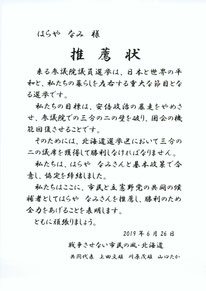 はらや なみ 様
推薦状
来る参議院議員選挙は、日本と世界の平
和と、私たちの暮らしを左右する重大な節目とな
る選挙です。
私たちの目標は、安倍政治の暴走をやめさ
せ、参議院での三分の二の壁を破り、国会の機
能回復させることです。
そのためには、北海道選挙区において三分の
二の議席を獲得して勝利しなければなりません。
私たちは、はらや なみさんと基本政策で合
意し、協定を締結しました。
私たちはここに、市民と立憲野党の共同の候
補者としてはらや なみさんを推薦し、勝利のため
全力をあげることを表明します。
ともに頑張りましょう。
2019年6月26日
戦争させない市民の風・北海道
共同代表 上田文雄 川原茂雄 山口たか